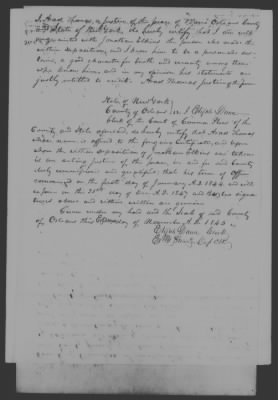 I, Arad Thomas, a justice of the peace, of Orleans County
& State of New York, do hereby certify, that I am well
acquainted with Jonathan the person who made the
within deposition, and I know him to be a person of
a good character for truth and veracity among those
who know him, and in my opinion his statements are
justly entitled to credit. Arad Thomas Justice of the peace
State of New York
County of Orleans ss. I Elijah Dana
Clerk of the Court of Common Pleas of the
County and State aforesaid, do hereby certify that Arad Thomas
whose name is affixed to the foregoing certificate, and before
whom the within deposition of Jonathan was taken
is an acting justice of the peace, in and for said County
duly commissioned and qualified; that his term of Office
commenced on the first day of January A.D. 1844 and will
expire on the 31st day of Dec. A.D. 1847 and his signa
tures above and within written are genuine
Given under my hand and the Seal of said County
of Orleans this day of November A.D. 1845
Elijah Dana Clerk